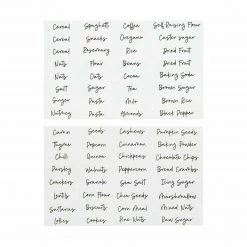 Cereal Spaghetti Coffee Self Raising Flour
Cereal Snacks Oregano Caster sugar
Cereal Rosemary Rice Dried Fruit
Nuts Flour Beans Dried Fruit
Nuts Oats Cocoa Baking Soda
Salt Sugar Tea Brown Sugar
Sugar Pasta Milo Brown Rice
Nutmeg Pasta Almonds Black Pepper
Cumin Seeds Cashews Pumpkin Seeds
Thyme Popcorn Cinnamon Baking Powder
Chilli Quinoa Chickpeas Chocolate Chips
Parsley Walnuts Peppercorn Bread Crumbs
Crackers Granola Sea Salt Icing Sugar
Lentils Corn Flour Chia Seeds Marshmallows
Sultanas Biscuits Corn Meal Mixed Nuts
Lollies Cookies Pine Nuts Raw Sugar